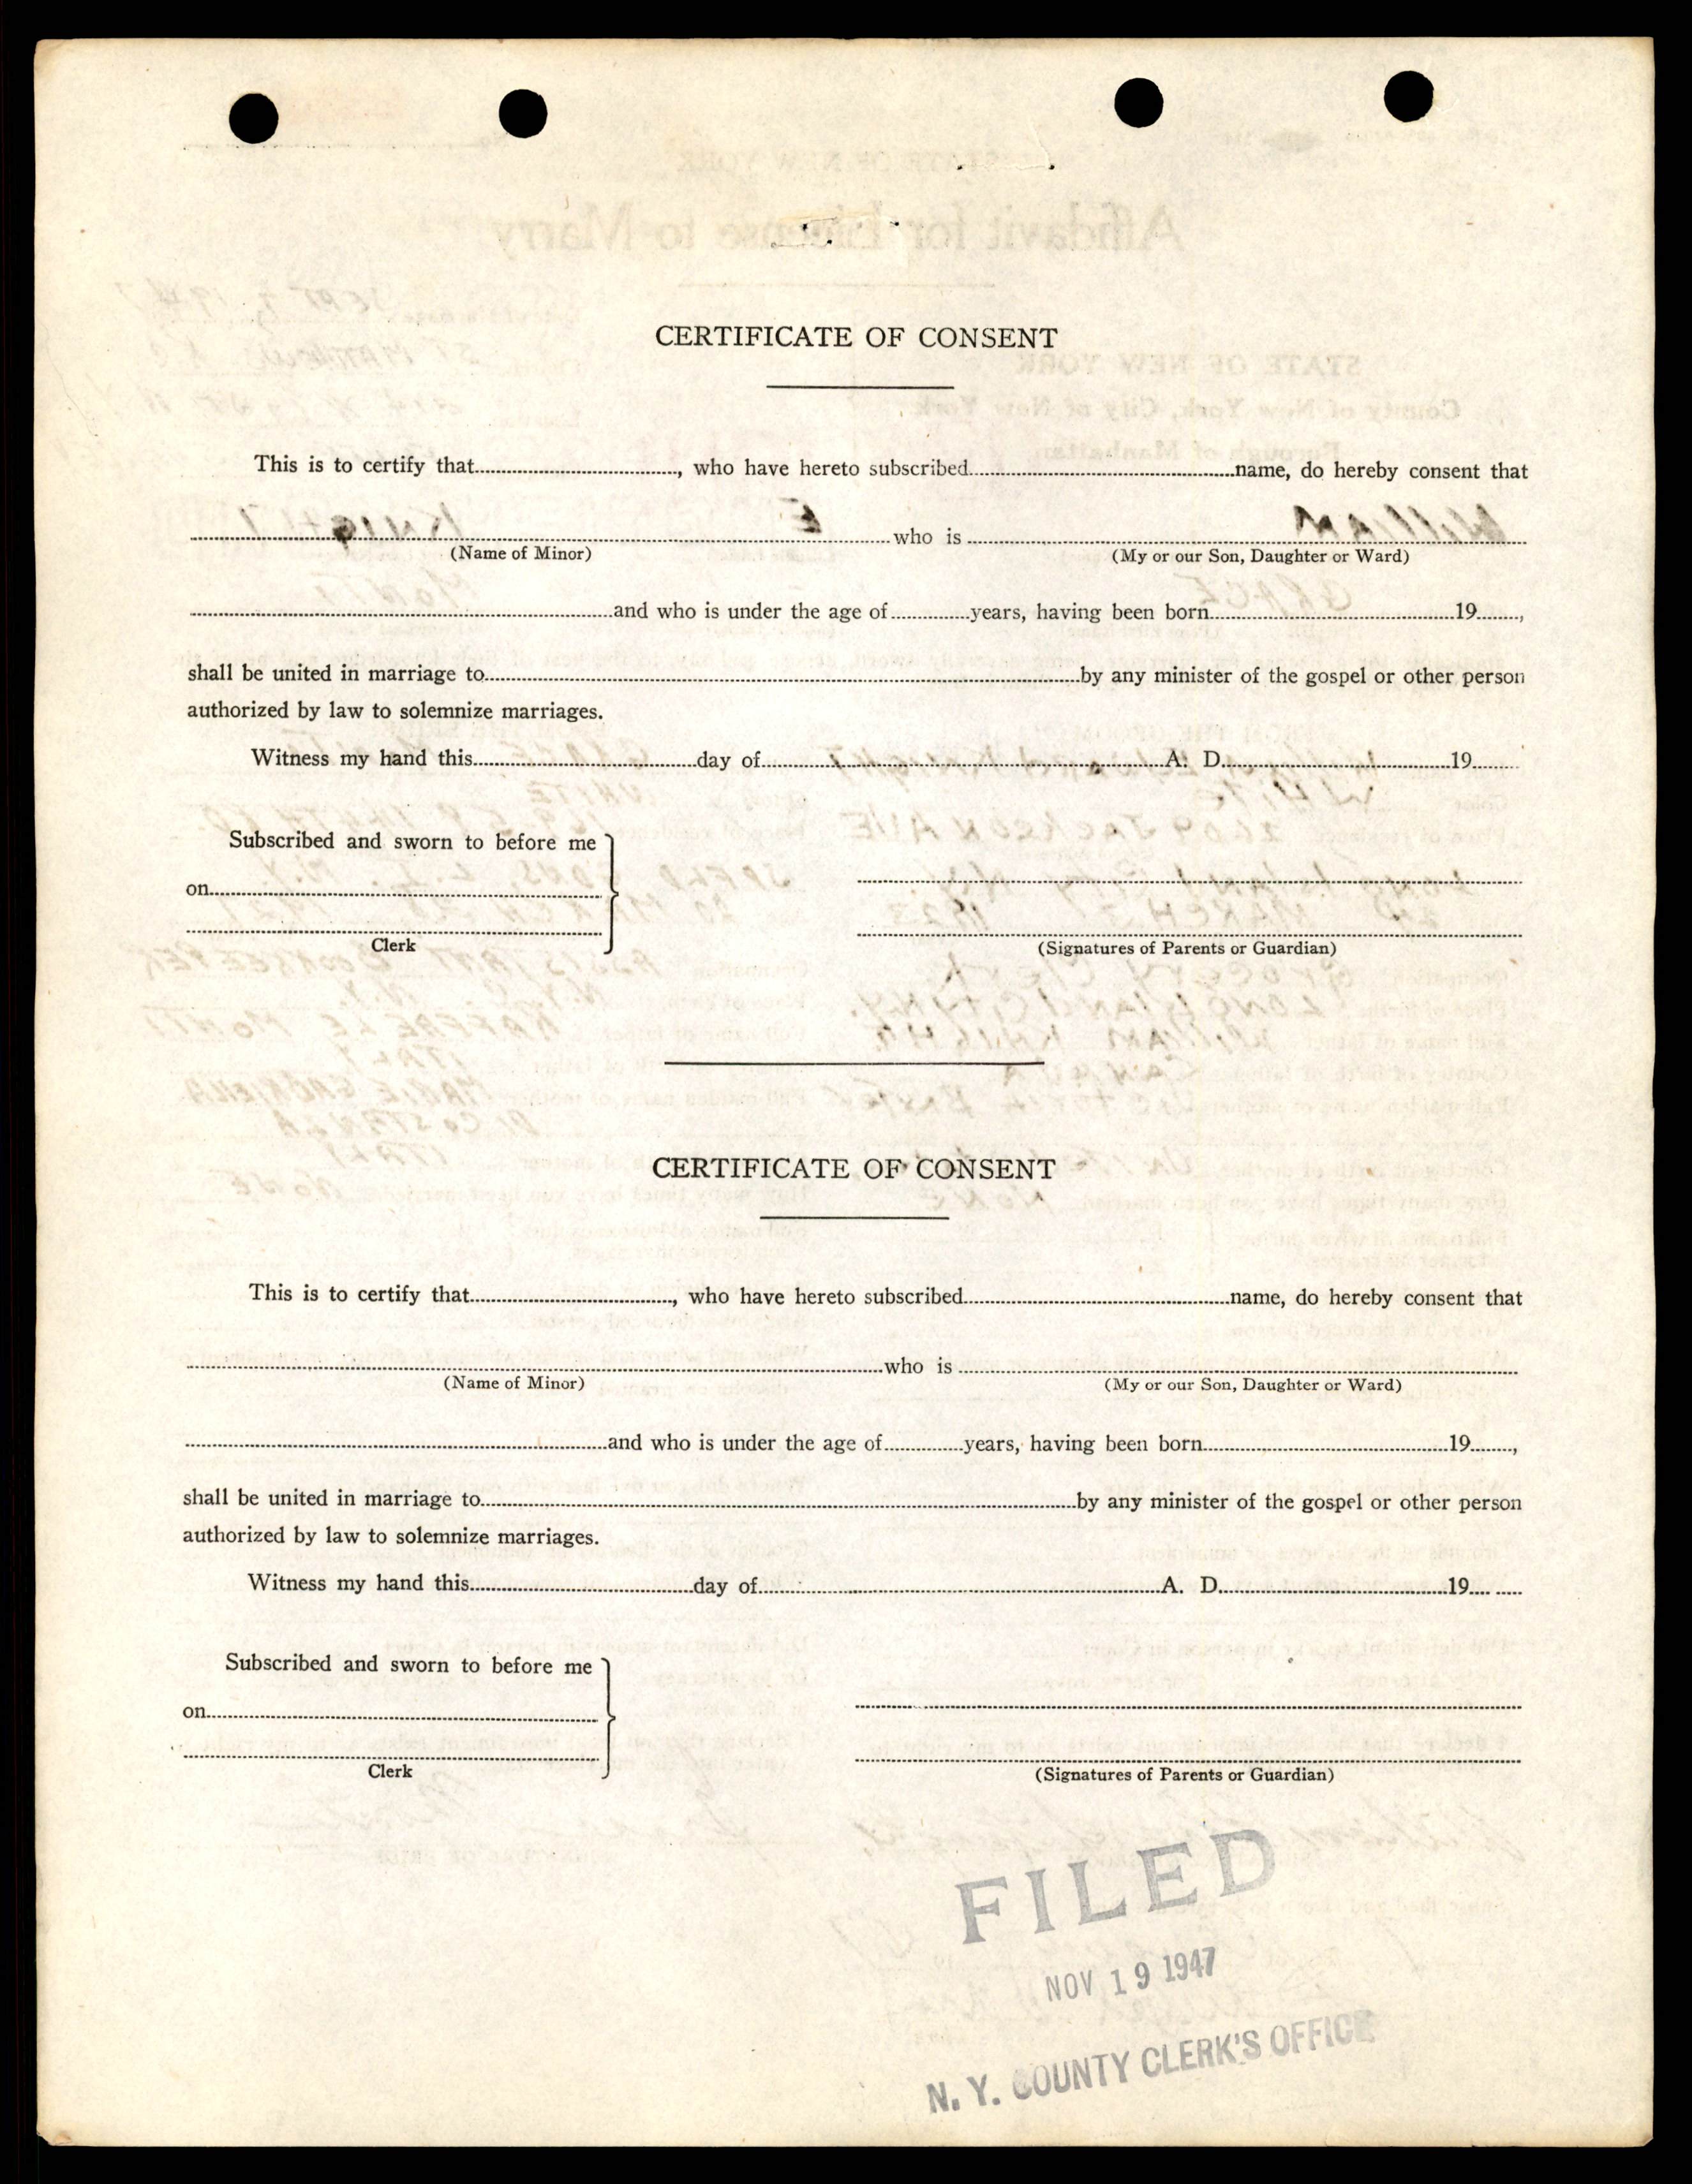 CERTIFICATE OF CONSENT
This is to certify that............, who have hereto subscribed............name, do hereby consent that
............who is............
(Name of Minor) (My or our Son, Daughter or Ward)
............and who is under the age of............years, having been born............19......,
shall be united in marriage to............by any minister of the gospel or other person
authorized by law to solemnize marriages.
Witness my hand this............day of............A. D............19......
Subscribed and sworn to before me
on............
Clerk
(Signatures of Parents or Guardian)
CERTIFICATE OF CONSENT
This is to certify that............, who have hereto subscribed............name, do hereby consent that
............who is............
(Name of Minor) (My or our Son, Daughter or Ward)
............and who is under the age of............years, having been born............19......,
shall be united in marriage to............by any minister of the gospel or other person
authorized by law to solemnize marriages.
Witness my hand this............day of............A. D............19......
Subscribed and sworn to before me
on............
Clerk
(Signatures of Parents or Guardian)
FILED
NOV 19 1947
N. Y. COUNTY CLERK'S OFFICE